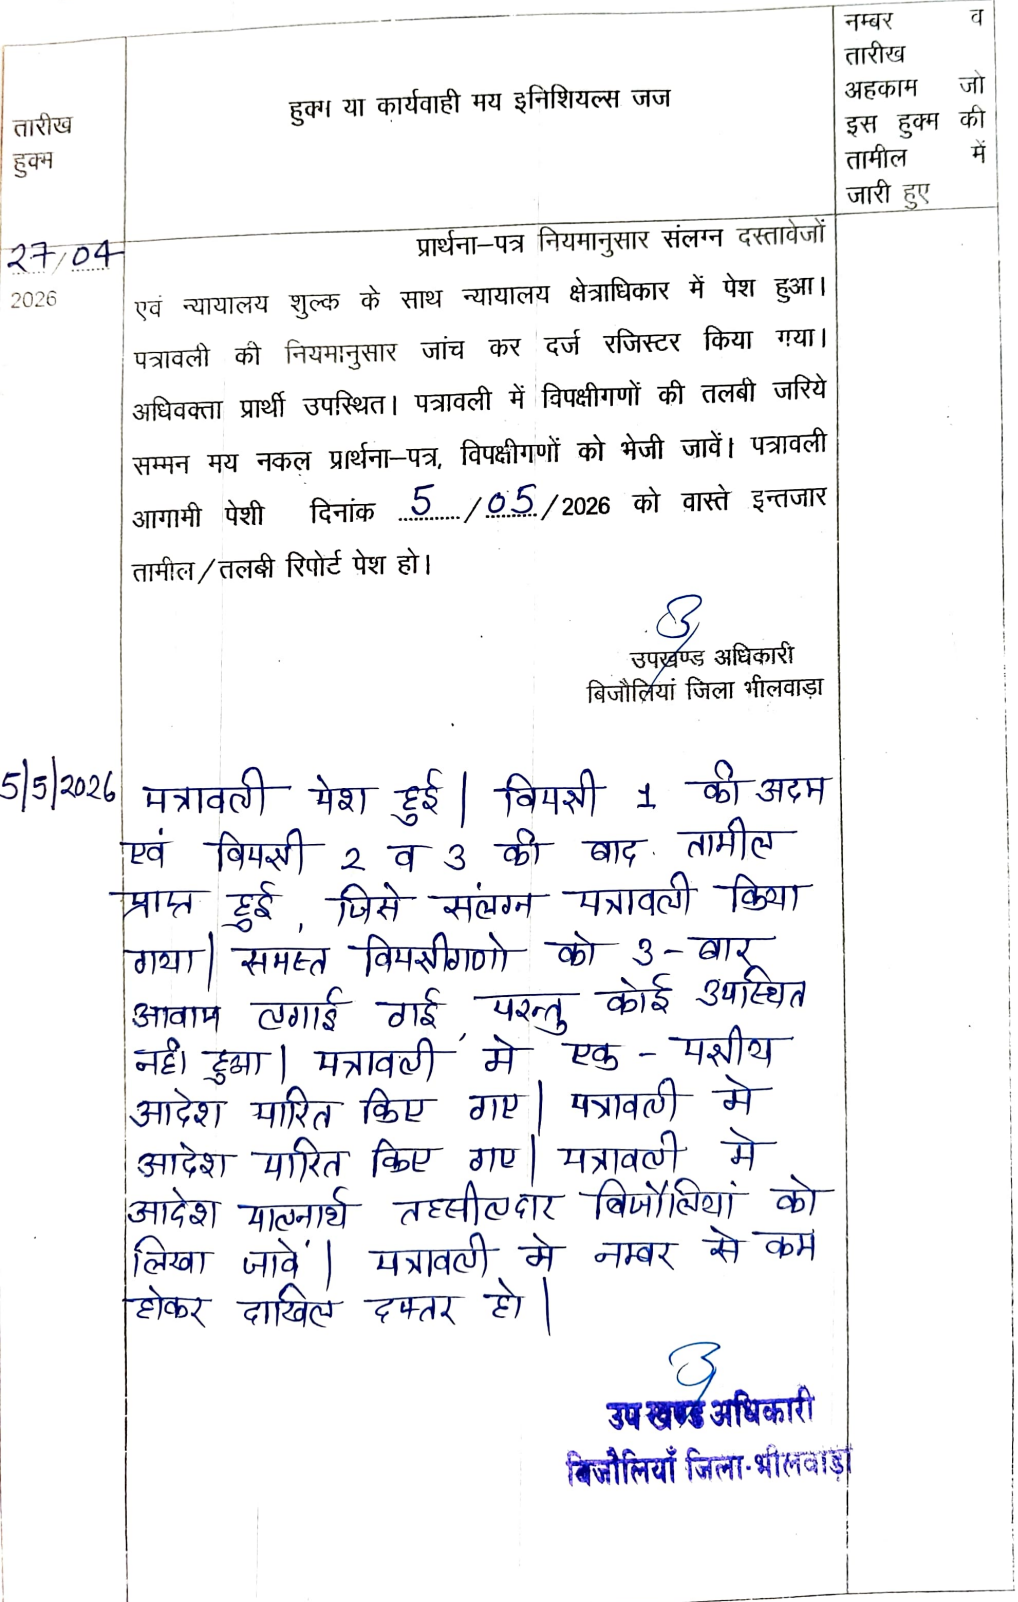 तारीख
हुक्म
हुक्म या कार्यवाही मय इनिशियल्स जज
नम्बर व
तारीख
अहकाम जो
इस हुक्म की
तामील में
जारी हुए
27/04
2026
प्रार्थना–पत्र नियमानुसार संलग्न दस्तावेजों
एवं न्यायालय शुल्क के साथ न्यायालय क्षेत्राधिकार में पेश हुआ।
पत्रावली की नियमानुसार जांच कर दर्ज रजिस्टर किया गया।
अधिवक्ता प्रार्थी उपस्थित। पत्रावली में विपक्षीगणों की तलबी जरिये
सम्मन मय नकल प्रार्थना–पत्र, विपक्षीगणों को भेजी जावें। पत्रावली
आगामी पेशी दिनांक 5/05/2026 को वास्ते इन्तजार
तामील/तलबी रिपोर्ट पेश हो।
उपखण्ड अधिकारी
बिजौलियां जिला भीलवाड़ा
5/5/2026 पत्रावली पेश हुई| विपक्षी 1 की अदम
एवं विपक्षी 2 व 3 की बाद तामील
प्राप्त हुई, जिसे संलग्न पत्रावली किया
गया| समस्त विपक्षीगणो को 3-बार
आवाज लगाई गई, परन्तु कोई उपस्थित
नही हुआ| पत्रावली मे एक-पक्षीय
आदेश पारित किए गए| पत्रावली मे
आदेश पारित किए गए| पत्रावली मे
आदेश पालनार्थ तहसीलदार बिजौलियां को
लिखा जावें| पत्रावली मे नम्बर से कम
होकर दाखिल दफ्तर हो|
उपखण्ड अधिकारी
बिजौलियाँ जिला-भीलवाड़ा